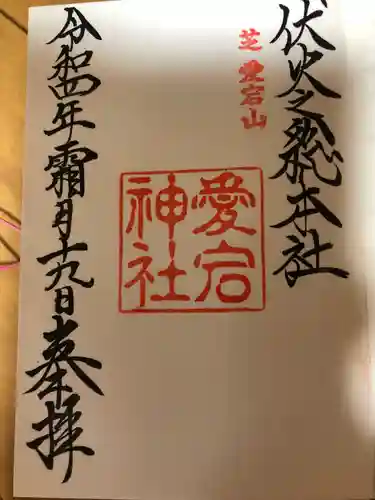 伏火之総本社
芝 愛宕山
愛宕
神社
令和四年霜月十九日登拝